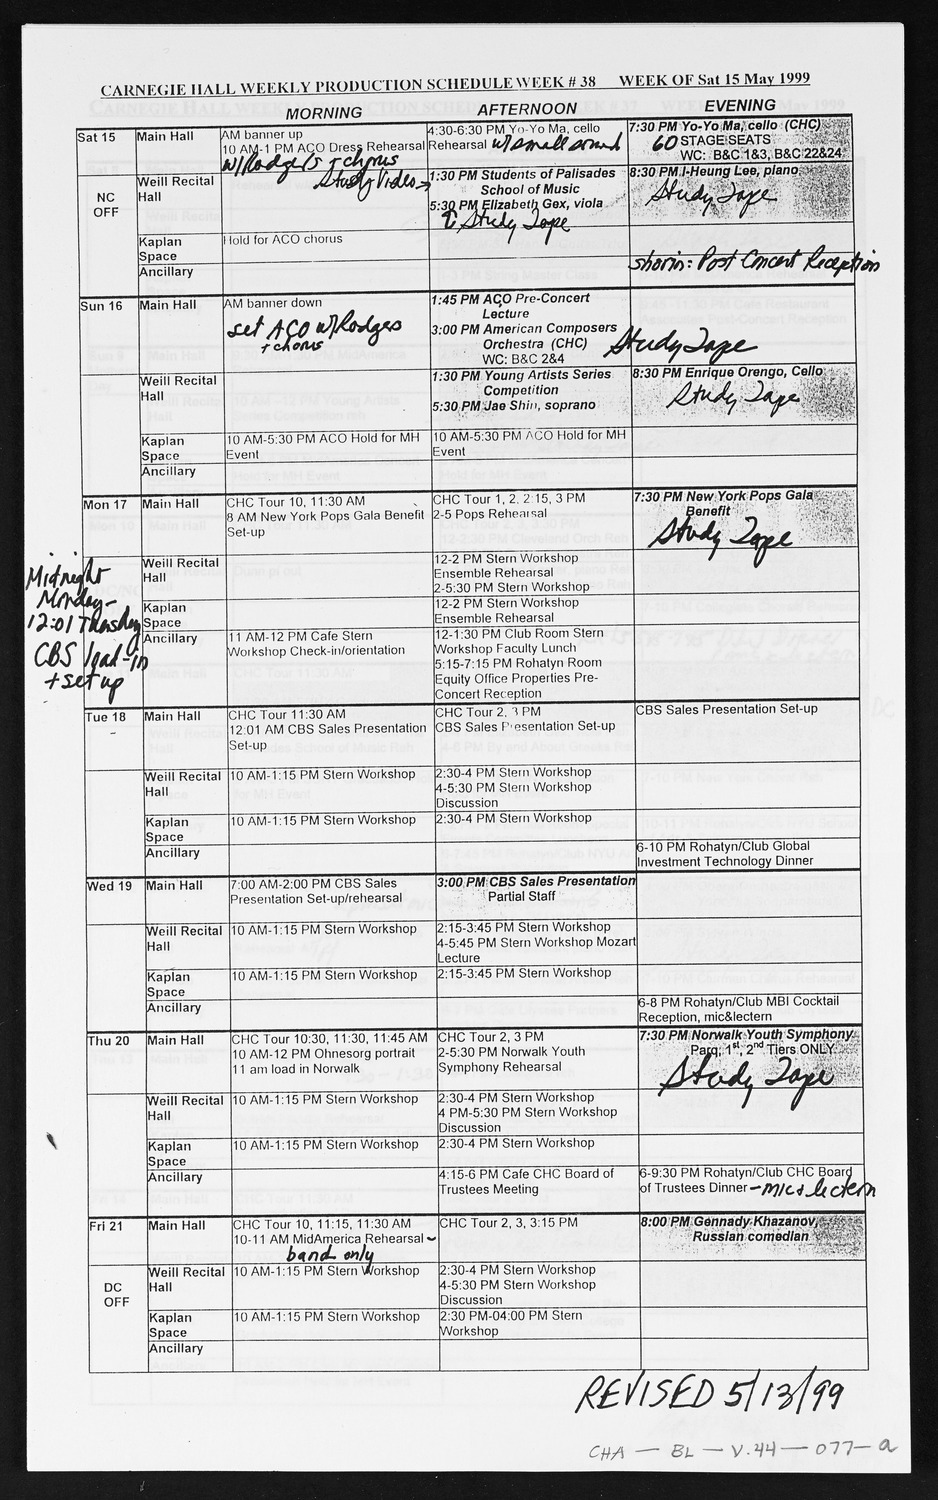 CARNEGIE HALL WEEKLY PRODUCTION SCHEDULE WEEK # 38 WEEK OF Sat 15 May 1999
MORNING AFTERNOON EVENING
Sat 15
NC
OFF
Main Hall
AM banner up
10 AM-1 PM ACO Dress Rehearsal
w/Rodgers + chorus
4:30-6:30 PM Yo-Yo Ma, cello
Rehearsal w/small sound
7:30 PM Yo-Yo Ma, cello (CHC)
60 STAGE SEATS
WC: B&C 1&3, B&C 22&24
Weill Recital
Hall
Study Video →
1:30 PM Students of Palisades
School of Music
5:30 PM Elizabeth Gex, viola
↑ Study Tape
8:30 PM I-Heung Lee, piano
Study Tape
Kaplan
Space
Hold for ACO chorus
Ancillary
shorin: Post Concert Reception
Sun 16
Main Hall
AM banner down
set ACO w/Rodges
+ chorus
1:45 PM ACO Pre-Concert
Lecture
3:00 PM American Composers
Orchestra (CHC)
WC: B&C 2&4
Study Tape
Weill Recital
Hall
1:30 PM Young Artists Series
Competition
5:30 PM Jae Shin, soprano
8:30 PM Enrique Orengo, Cello
Study Tape
Kaplan
Space
10 AM-5:30 PM ACO Hold for MH
Event
10 AM-5:30 PM ACO Hold for MH
Event
Ancillary
Mon 17
Main Hall
CHC Tour 10, 11:30 AM
8 AM New York Pops Gala Benefit
Set-up
CHC Tour 1, 2, 2:15, 3 PM
2-5 Pops Rehearsal
7:30 PM New York Pops Gala
Benefit
Study Tape
Midnight
Monday-
12:01 Tuesday
CBS load-in
+ set up
Weill Recital
Hall
12-2 PM Stern Workshop
Ensemble Rehearsal
2-5:30 PM Stern Workshop
Kaplan
Space
12-2 PM Stern Workshop
Ensemble Rehearsal
Ancillary
11 AM-12 PM Cafe Stern
Workshop Check-in/orientation
12-1:30 PM Club Room Stern
Workshop Faculty Lunch
5:15-7:15 PM Rohatyn Room
Equity Office Properties Pre-
Concert Reception
Tue 18
Main Hall
CHC Tour 11:30 AM
12:01 AM CBS Sales Presentation
Set-up
CHC Tour 2, 3 PM
CBS Sales Presentation Set-up
CBS Sales Presentation Set-up
Weill Recital
Hall
10 AM-1:15 PM Stern Workshop
2:30-4 PM Stern Workshop
4-5:30 PM Stern Workshop
Discussion
Kaplan
Space
10 AM-1:15 PM Stern Workshop
2:30-4 PM Stern Workshop
Ancillary
6-10 PM Rohatyn/Club Global
Investment Technology Dinner
Wed 19
Main Hall
7:00 AM-2:00 PM CBS Sales
Presentation Set-up/rehearsal
3:00 PM CBS Sales Presentation
Partial Staff
Weill Recital
Hall
10 AM-1:15 PM Stern Workshop
2:15-3:45 PM Stern Workshop
4-5:45 PM Stern Workshop Mozart
Lecture
Kaplan
Space
10 AM-1:15 PM Stern Workshop
2:15-3:45 PM Stern Workshop
Ancillary
6-8 PM Rohatyn/Club MBI Cocktail
Reception, mic&lectern
Thu 20
Main Hall
CHC Tour 10:30, 11:30, 11:45 AM
10 AM-12 PM Ohnesorg portrait
11 am load in Norwalk
CHC Tour 2, 3 PM
2-5:30 PM Norwalk Youth
Symphony Rehearsal
7:30 PM Norwalk Youth Symphony
Parq, 1st, 2nd Tiers ONLY
Study Tape
Weill Recital
Hall
10 AM-1:15 PM Stern Workshop
2:30-4 PM Stern Workshop
4 PM-5:30 PM Stern Workshop
Discussion
Kaplan
Space
10 AM-1:15 PM Stern Workshop
2:30-4 PM Stern Workshop
Ancillary
4:15-6 PM Cafe CHC Board of
Trustees Meeting
6-9:30 PM Rohatyn/Club CHC Board
of Trustees Dinner - mic & lectern
Fri 21
DC
OFF
Main Hall
CHC Tour 10, 11:15, 11:30 AM
10-11 AM MidAmerica Rehearsal -
band only
CHC Tour 2, 3, 3:15 PM
8:00 PM Gennady Khazanov,
Russian comedian
Weill Recital
Hall
10 AM-1:15 PM Stern Workshop
2:30-4 PM Stern Workshop
4-5:30 PM Stern Workshop
Discussion
Kaplan
Space
10 AM-1:15 PM Stern Workshop
2:30 PM-04:00 PM Stern
Workshop
Ancillary
REVISED 5/13/99
CHA - BL - V.44 - 077 - a